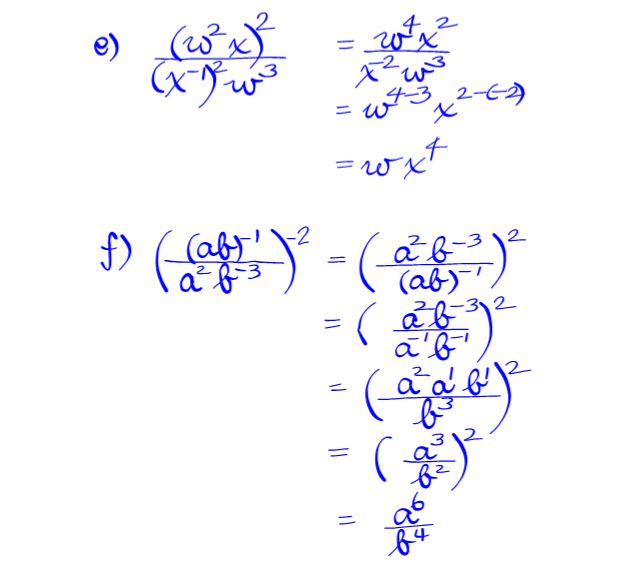 e) (w²x)² / (x⁻¹)²w³ = w⁴x² / x⁻²w³
= w⁴⁻³ x²⁻⁽⁻²⁾
= wx⁴
f) ((ab)⁻¹ / a²b⁻³)⁻² = (a²b⁻³ / (ab)⁻¹)²
= (a²b⁻³ / a⁻¹b⁻¹)²
= (a²a¹b¹ / b³)²
= (a³ / b²)²
= a⁶ / b⁴